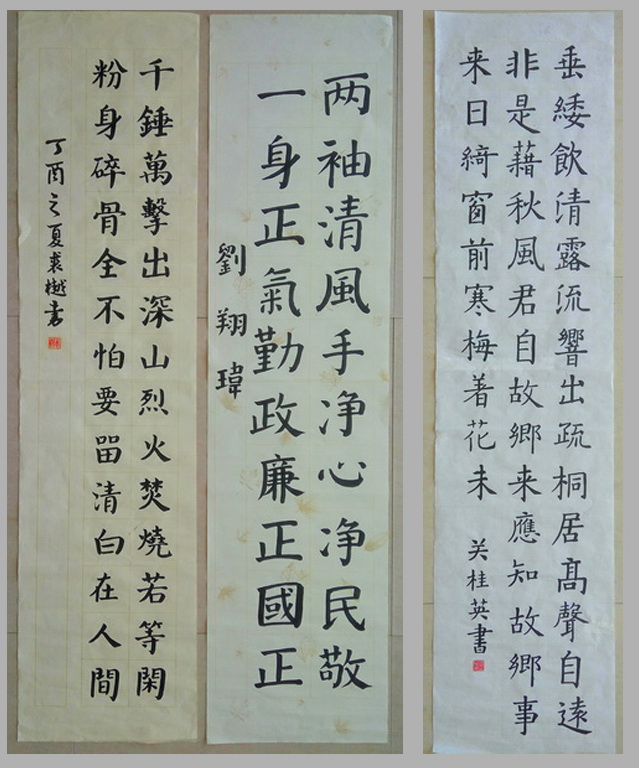 垂緌飲清露流響出疏桐居髙聲自遠
非是藉秋風君自故鄉来應知故鄉事
来日綺窗前寒梅着花未
关桂英書
两袖清風手净心净民敬
一身正氣勤政廉正國正
劉翔瑋
千錘萬擊出深山烈火焚燒若等閑
粉身碎骨全不怕要留清白在人間
丁酉之夏裘樾书